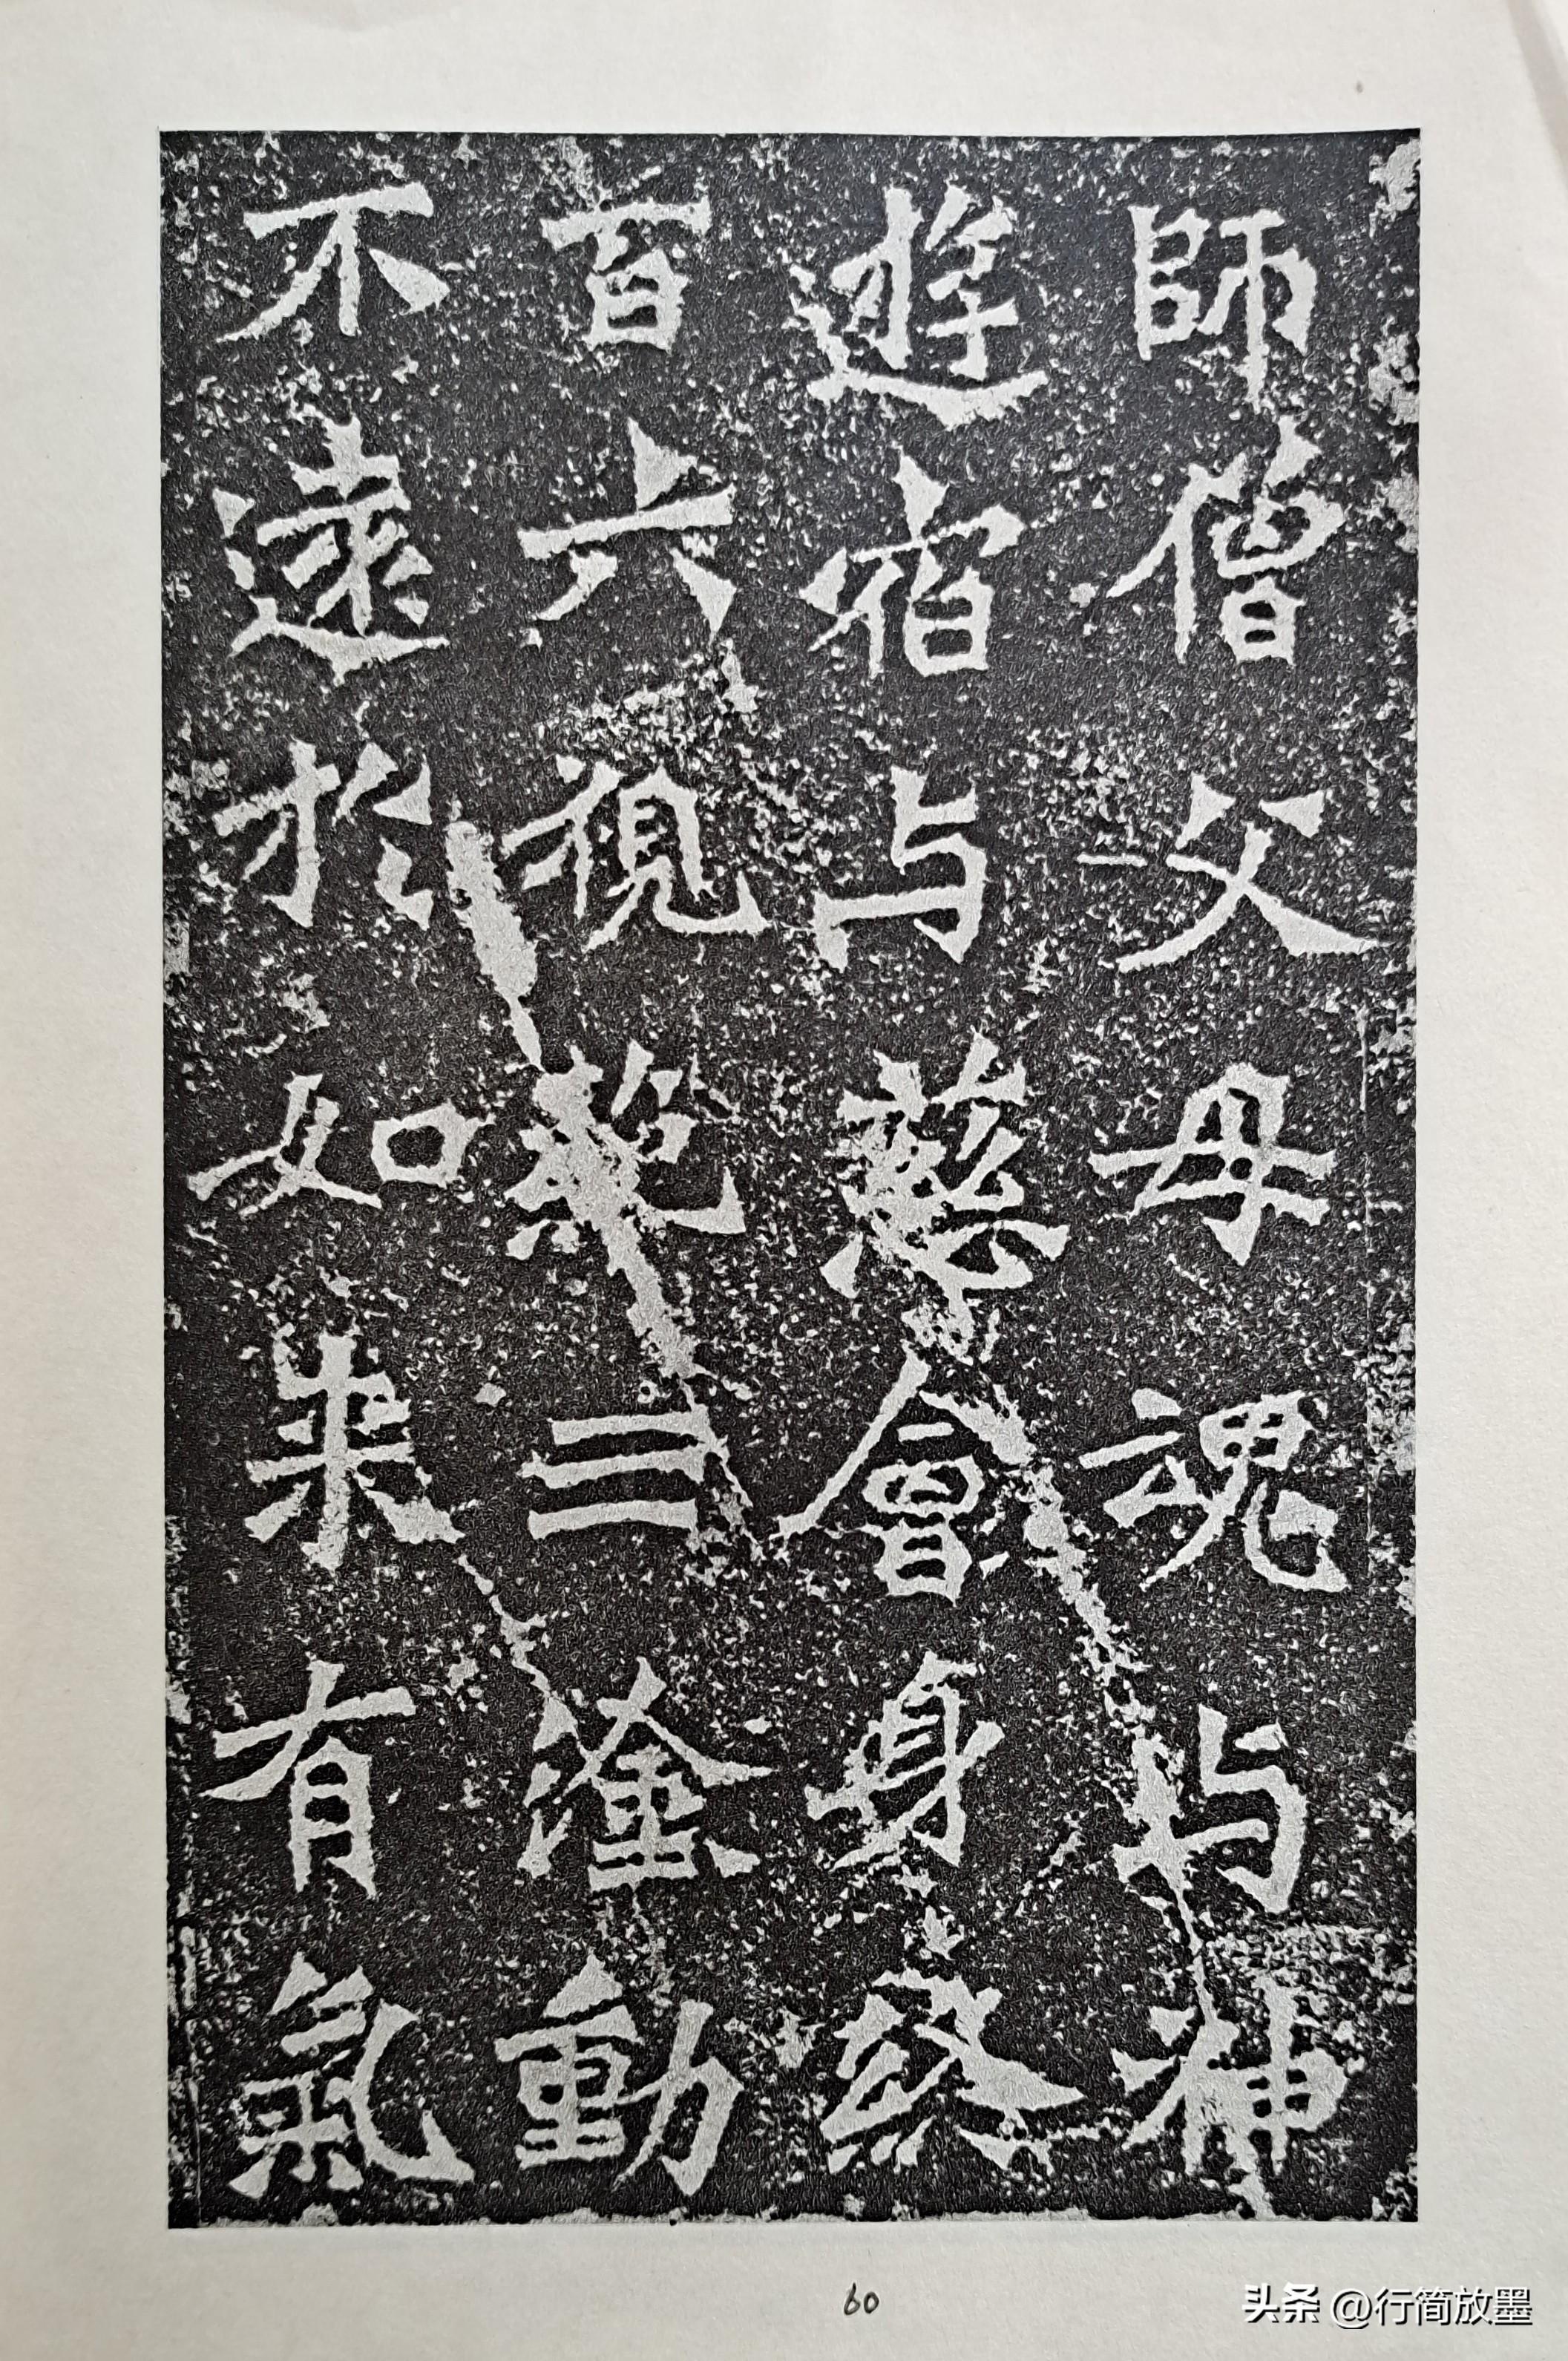 師僧父母魂与神
遊宿与慈會身終
百六視絶三塗動
不遠於如来有氣
60
头条 @行简放墨